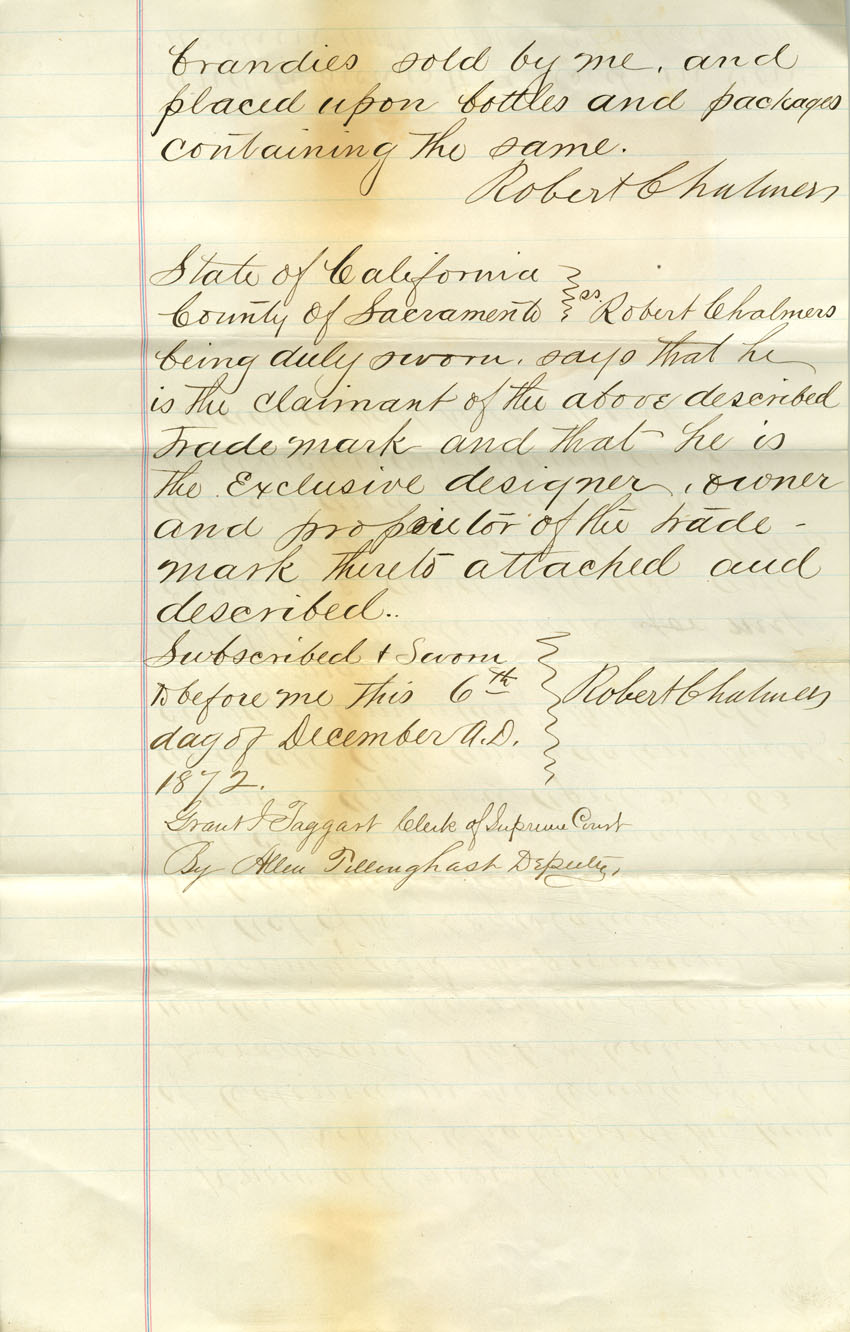 brandies sold by me, and
placed upon bottles and packages
containing the same.
Robert Chalmers
State of California
County of Sacramento } ss. Robert Chalmers
being duly sworn, says that he
is the claimant of the above described
Trade mark and that he is
the Exclusive designer, owner
and proprietor of the trade-
mark thereto attached and
described..
Subscribed & Sworn
to before me this 6th
day of December A.D.
1872.
Robert Chalmers
Grant I Taggart Clerk of Supreme Court
By Allen Tillinghast Deputy,